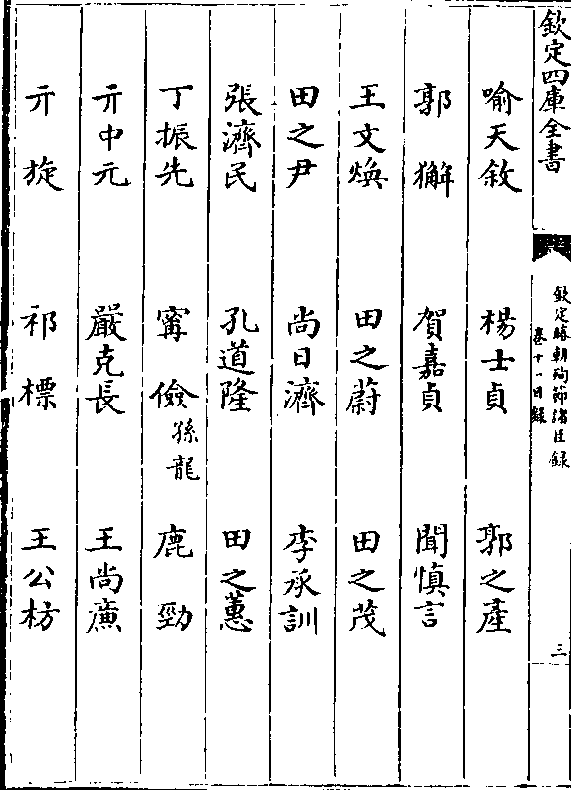 欽定四庫全書
欽定勝朝殉節諸臣録
卷十一目録
三
喻天敘 楊士貞 郭之產
郭獬 賀嘉貞 聞慎言
王文煥 田之蔚 田之茂
田之尹 尚日濟 李承訓
張濟民 孔道隆 田之蕙
丁振先 甯儉孫龍 鹿勁
亓中元 嚴克長 王尚
亓旋 祁標 王公枋